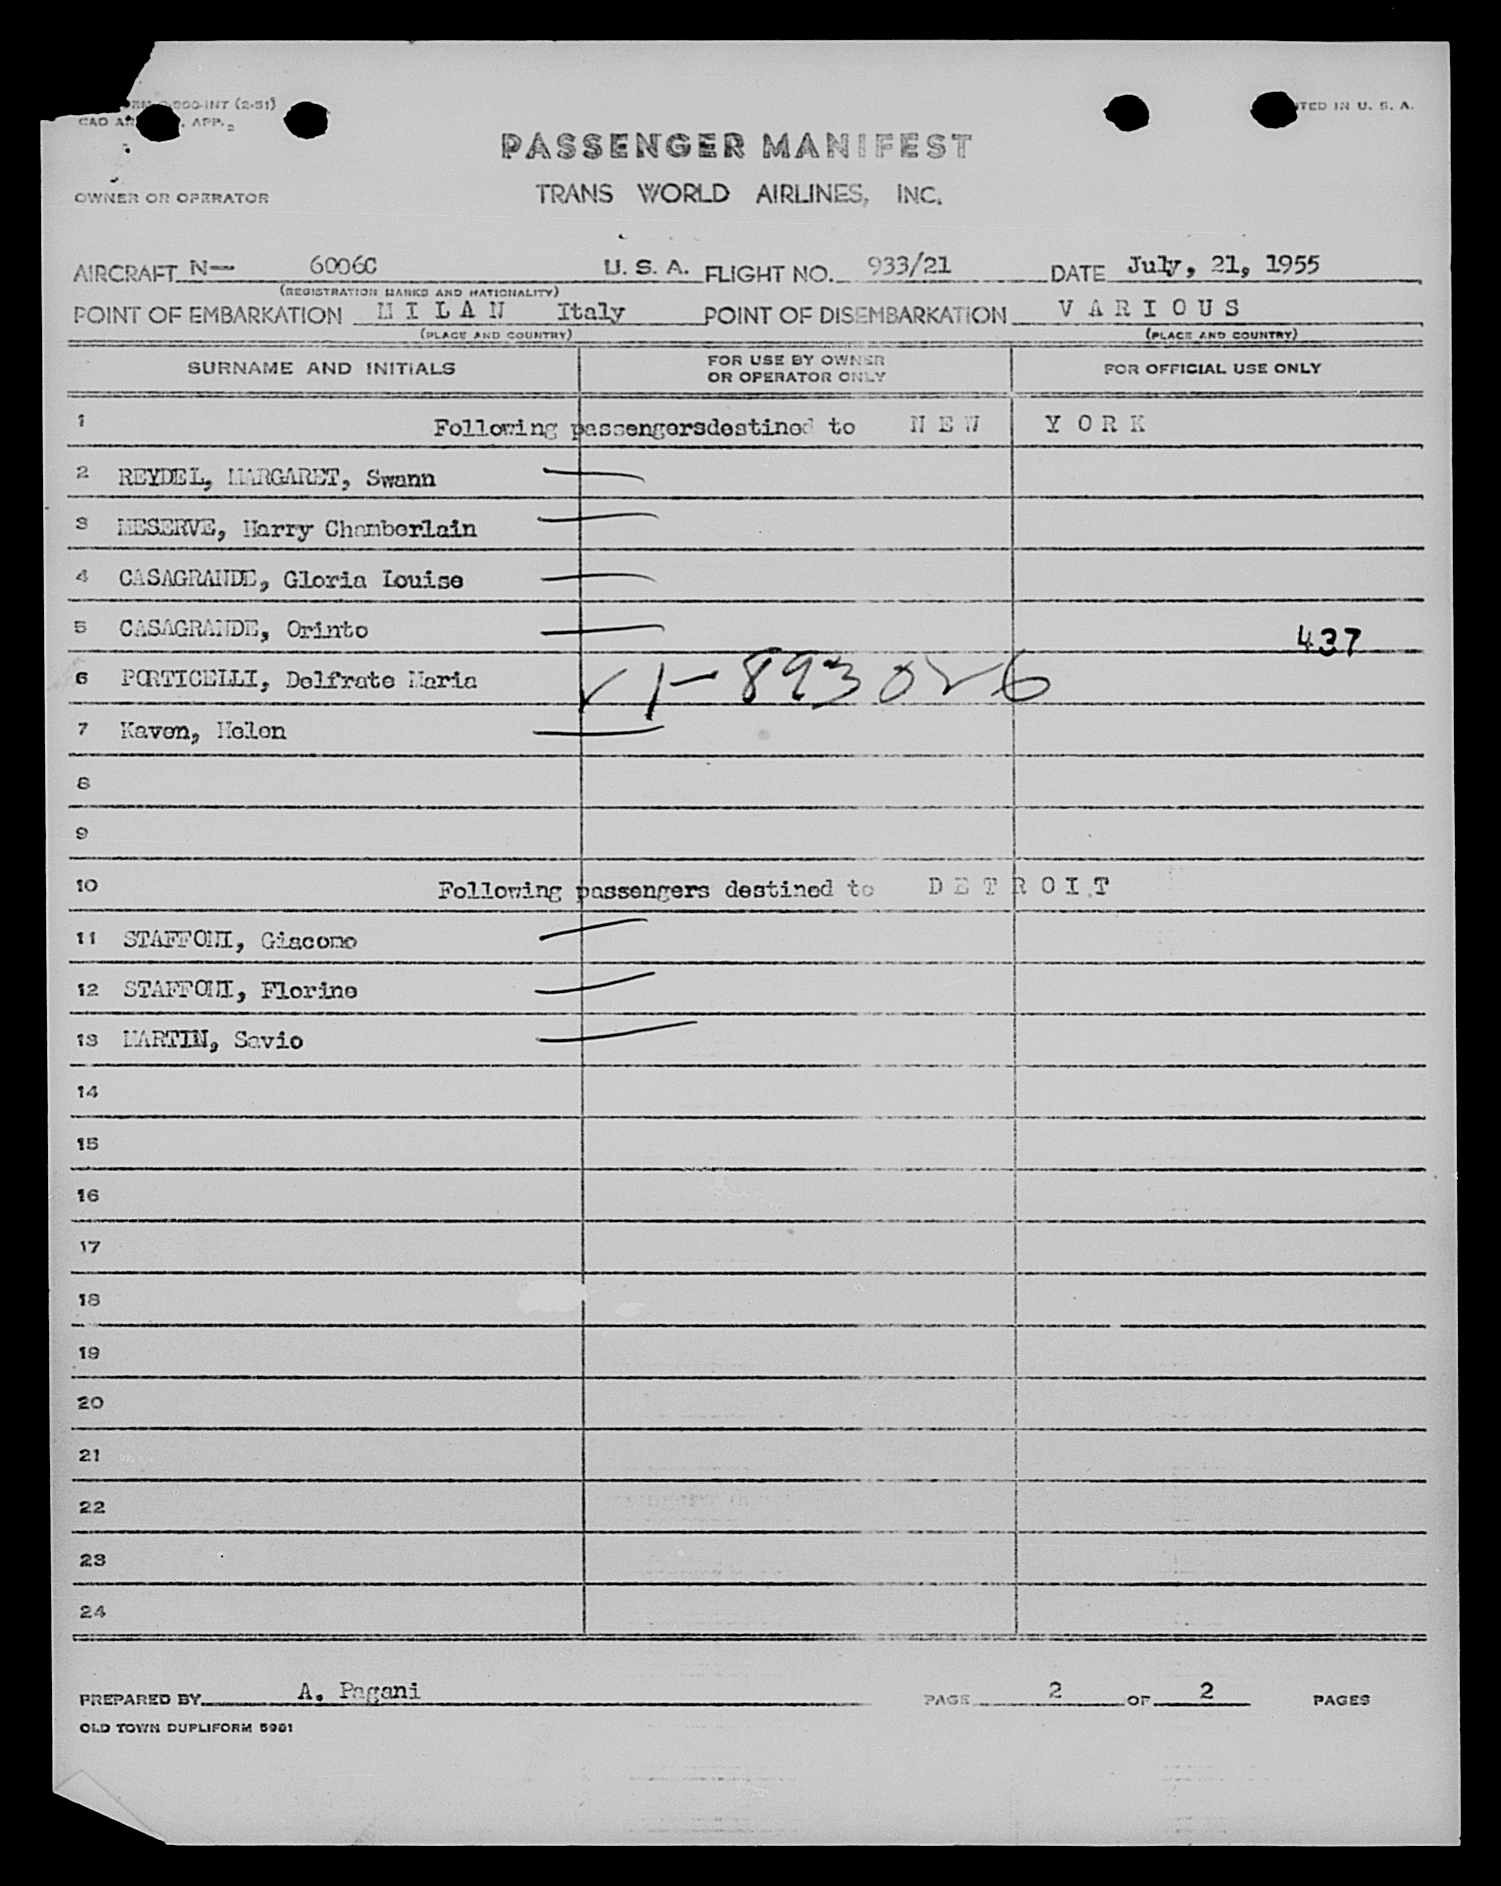 -INT (2-51)
TED IN U. S. A.
CAO APP.
PASSENGER MANIFEST
OWNER OR OPERATOR
TRANS WORLD AIRLINES, INC.
AIRCRAFT N— 6006C U. S. A. FLIGHT NO. 933/21 DATE July, 21, 1955
(REGISTRATION MARKS AND NATIONALITY)
POINT OF EMBARKATION M I L A N Italy POINT OF DISEMBARKATION V A R I O U S
(PLACE AND COUNTRY) (PLACE AND COUNTRY)
SURNAME AND INITIALS FOR USE BY OWNER OR OPERATOR ONLY FOR OFFICIAL USE ONLY
1 Following passengersdestined to N E W Y O R K
2 REYDEL, MARGARET, Swann
3 MESERVE, Harry Chamberlain
4 CASAGRANDE, Gloria Louise
5 CASAGRANDE, Orinto
437
6 PORTICELLI, Delfrate Maria ✓ 1-893026
7 Kaven, Helen
8
9
10 Following passengers destined to D E T R O I T
11 STAFFONI, Giacomo
12 STAFFONI, Florine
13 MARTIN, Savio
14
15
16
17
18
19
20
21
22
23
24
PREPARED BY A. Pagani PAGE 2 OF 2 PAGES
OLD TOWN DUPLIFORM 5981